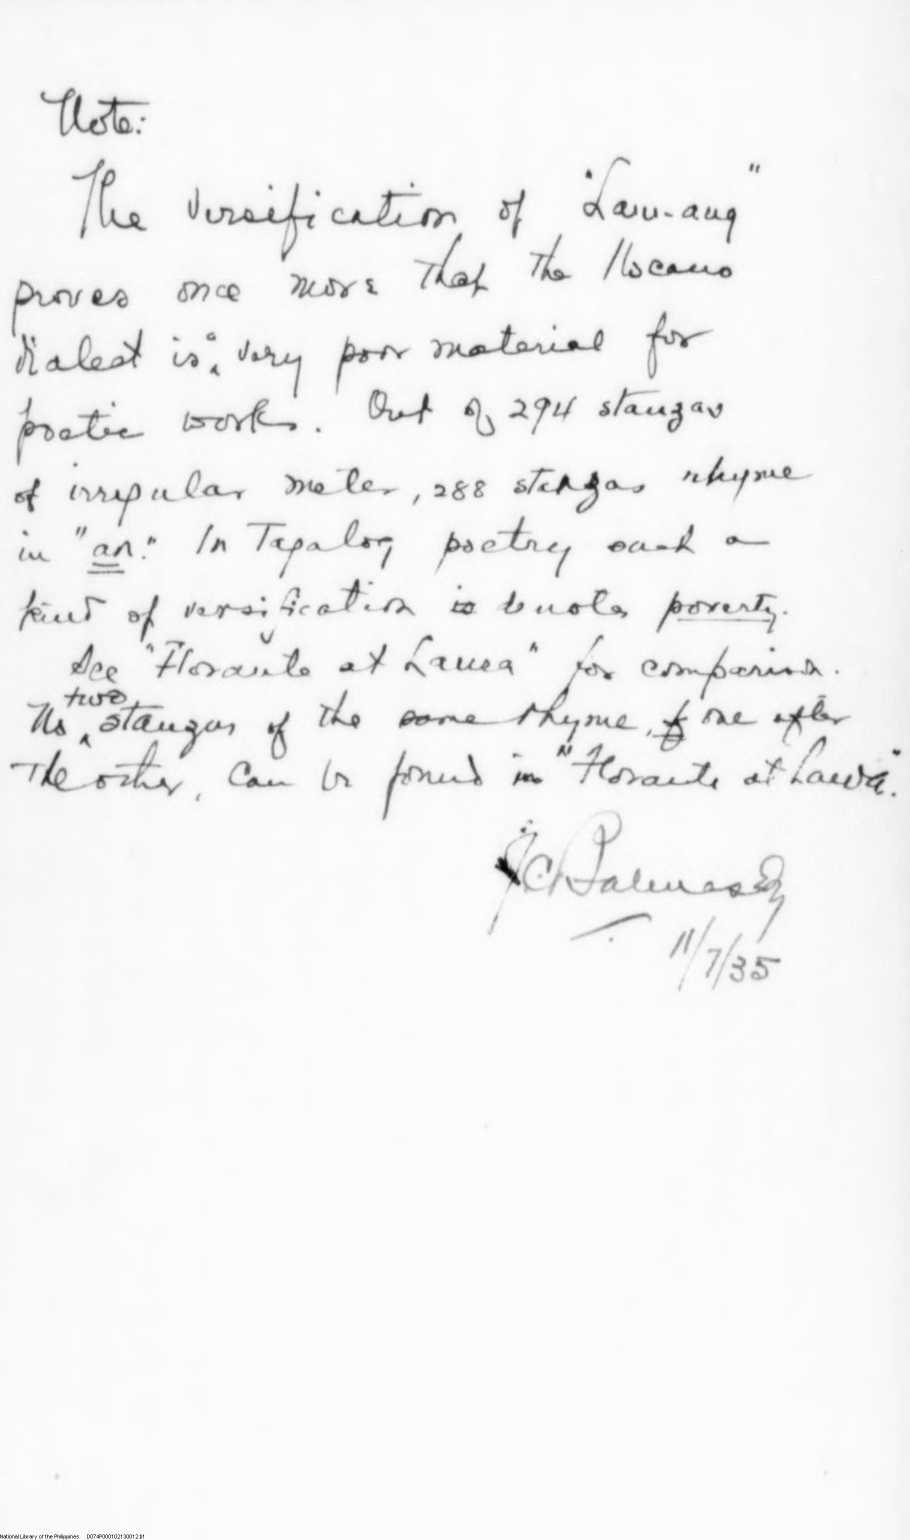 Note:
The versification of "Lam-ang"
proves once more that the Ilocano
dialect is a very poor material for
poetic works. Out of 294 stanzas
of irregular meter, 288 stanzas rhyme
in "an." In Tagalog poetry such a
kind of versification denotes poverty.
See "Florante at Laura" for comparison.
No two stanzas of the same rhyme, one after
the other, can be found in "Florante at Laura".
J C Balmaseda
11/7/35
National Library of the Philippines D074P000102130012.tif